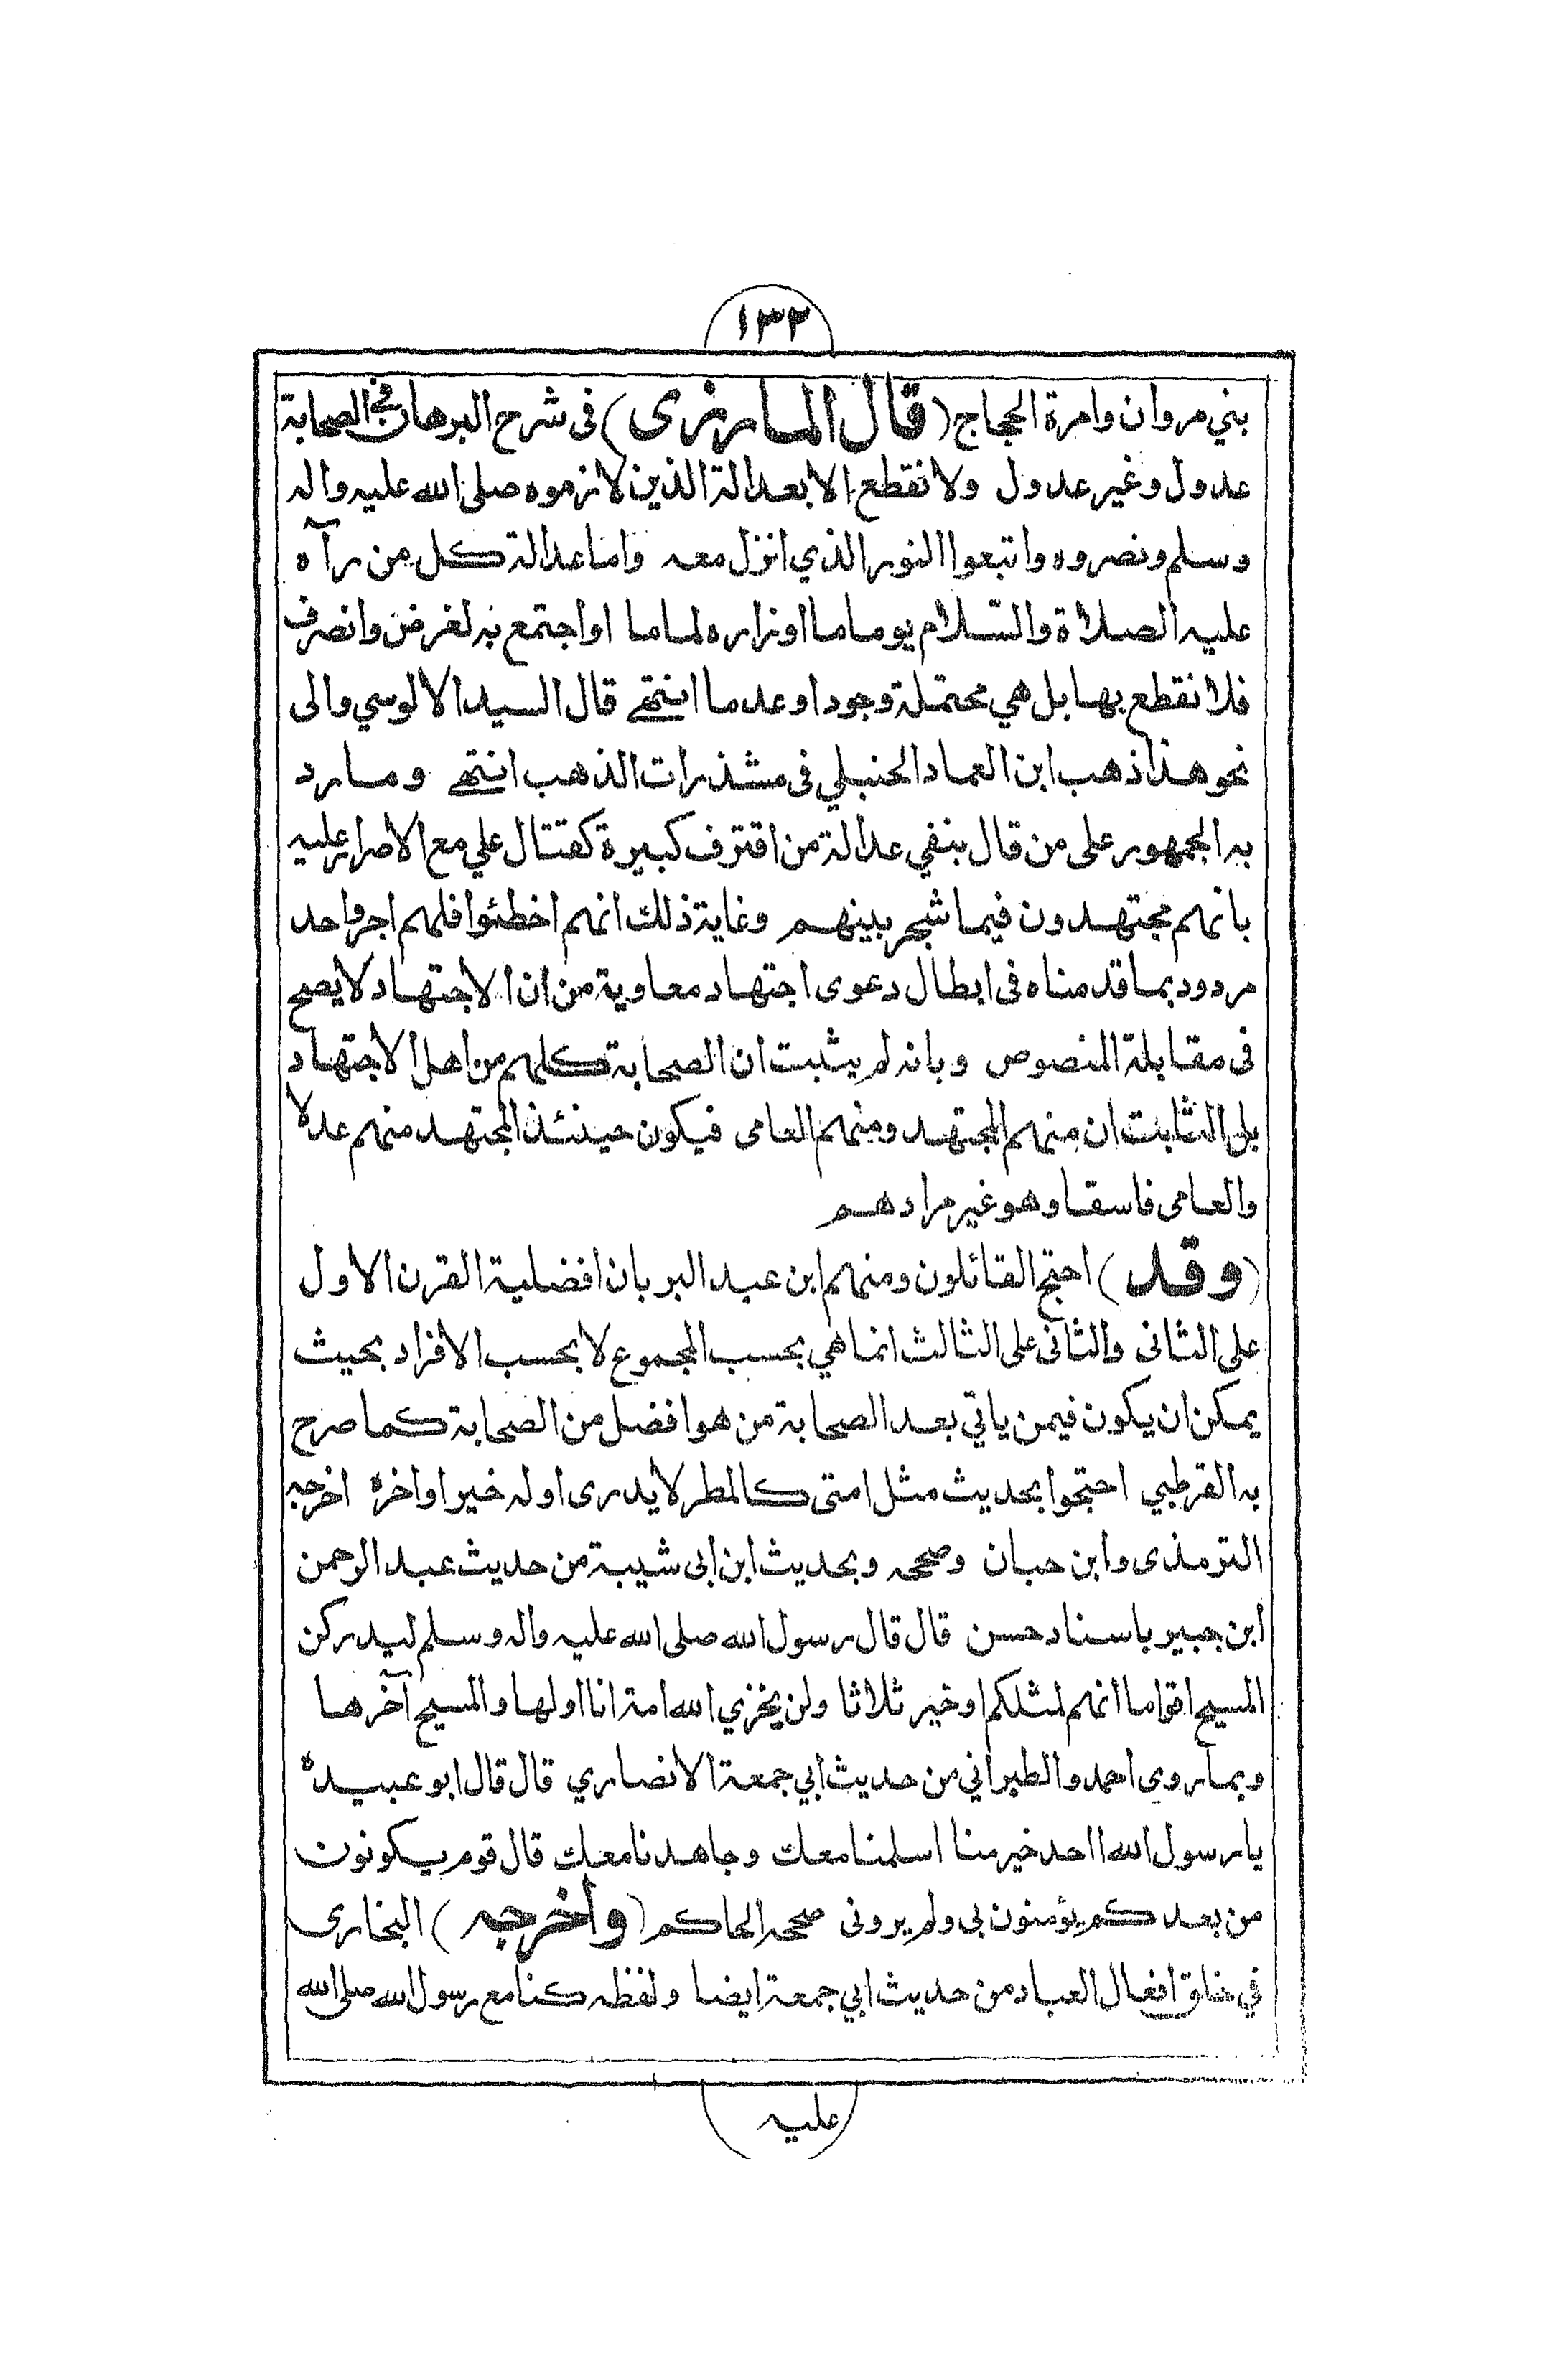 ١٣٢
بني مروان وامرة الحجاج (قال المازرى) فى شرح البرهان فى الصحابة
عدول وغير عدول ولا نقطع الا بعدالة الذين لازموه صلى الله عليه واله
وسلم ونصروه واتبعوا النور الذي انزل معه واما عدالة كل من رآه
عليه الصلاة والسّلام يوما ما اوزاره لماما او اجتمع به لغرض وانصرف
فلا نقطع بها بل هي محتملة وجودا وعدما انتهى قال السيد الالوسي والى
نحو هذا ذهب ابن العماد الحنبلي فى شذرات الذهب انتهى وما رد
به الجمهور على من قال بنفي عدالة من اقترف كبيرة كقتال علي مع الاصرار عليه
بانهم مجتهدون فيما شجر بينهم وغاية ذلك انهم اخطئوا فلهم اجر واحد
مردود بما قدمناه فى ابطال دعوى اجتهاد معاوية من ان الاجتهاد لا يصح
فى مقابلة النصوص وبانه لم يثبت ان الصحابة كلهم من اهل الاجتهاد
بل الثابت ان منهم المجتهد ومنهم العامى فيكون حينئذ المجتهد منهم عدلا
والعامى فاسقا وهو غير مرادهم
(وقد) احتج القائلون ومنهم ابن عبد البر بان افضلية القرن الاول
على الثانى والثانى على الثالث انما هي بحسب المجموع لا بحسب الافراد بحيث
يمكن ان يكون فيمن ياتي بعد الصحابة من هو افضل من الصحابة كما صرح
به القرطبي احتجوا بحديث مثل امتى كالمطر لا يدرى اوله خير او اخره اخرجه
الترمذى وابن حبان وصححه وبحديث ابن ابى شيبة من حديث عبد الرحمن
ابن جبير باسناد حسن قال قال رسول الله صلى الله عليه واله وسلم ليدركن
المسيح اقواما انهم لمثلكم او خير ثلاثا ولن يخزي الله امة انا اولها والمسيح آخرها
وبما روى احمد والطبراني من حديث ابي جمعة الانصاري قال قال ابو عبيدة
يا رسول الله ااحد خير منا اسلمنا معك وجاهدنا معك قال قوم يكونون
من بعدكم يؤمنون بى ولم يرونى صححه الحاكم (واخرجه) البخارى
في خلق افعال العباد من حديث ابي جمعة ايضا ولفظه كنا مع رسول الله صلى الله
عليه